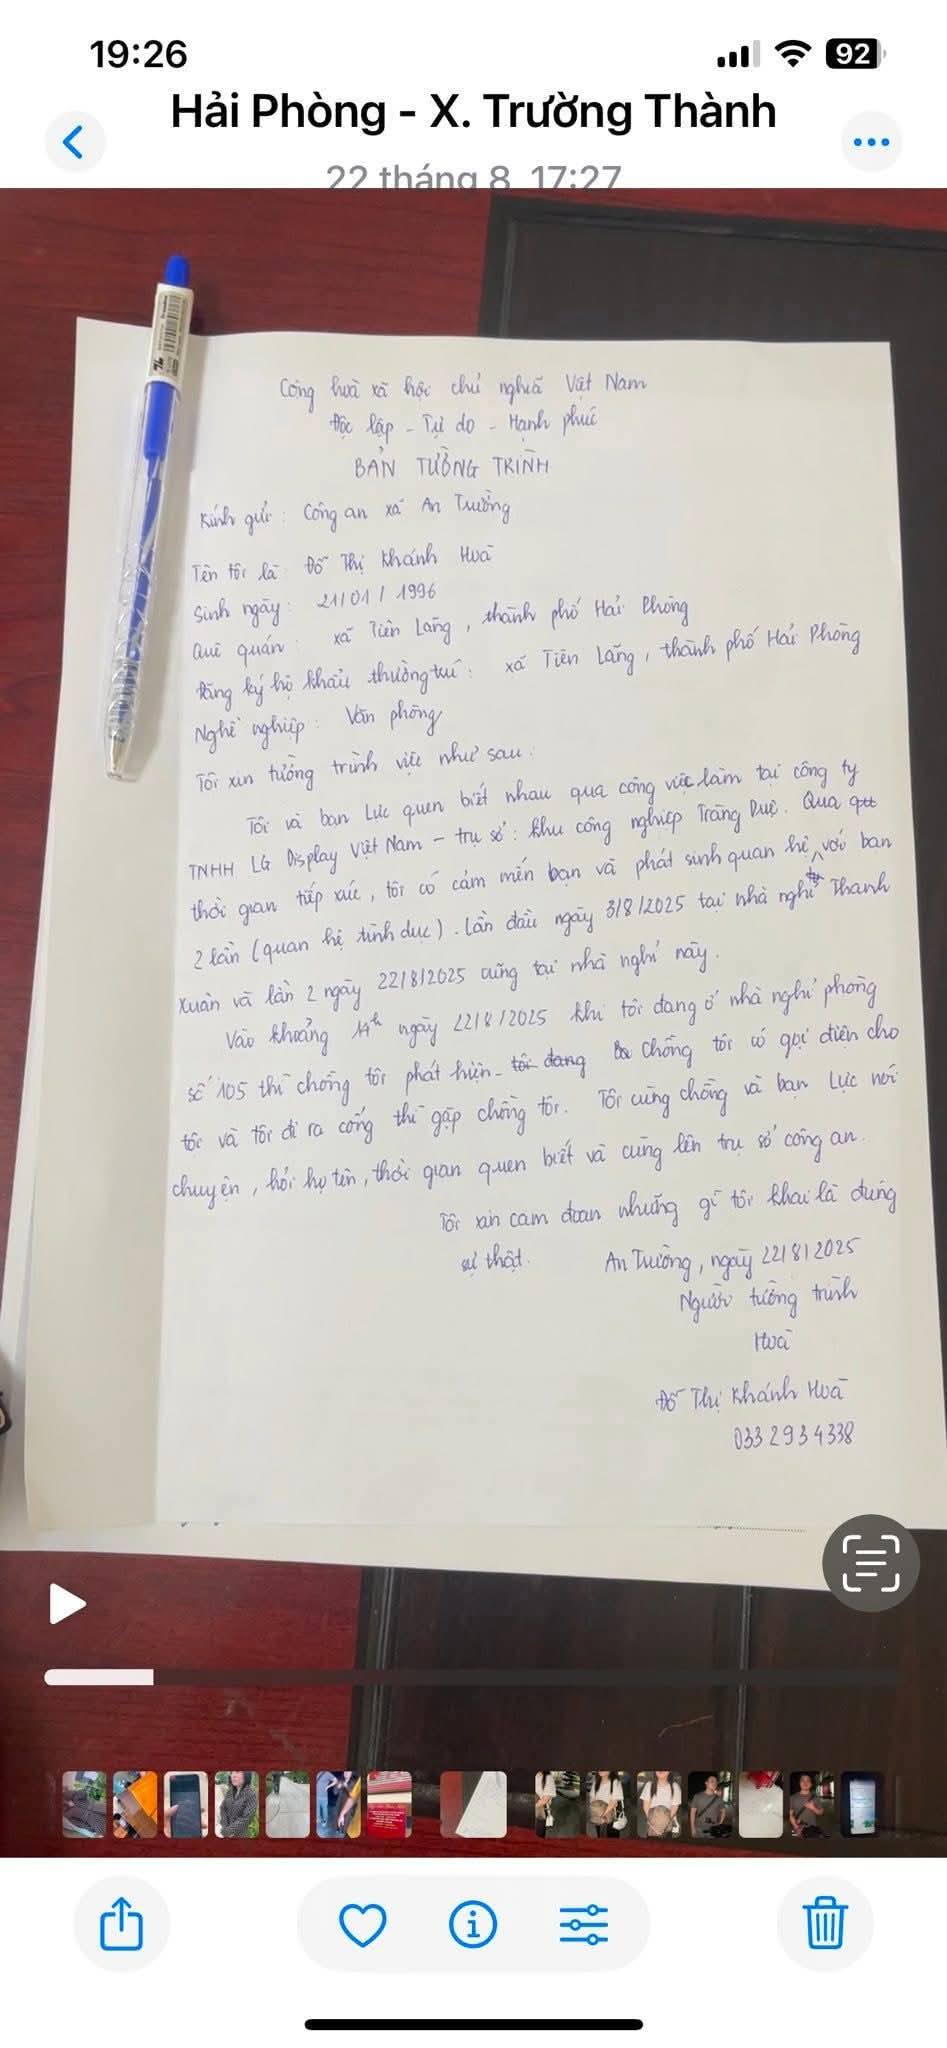 19:26
92
Hải Phòng - X. Trường Thành
22 tháng 8 17:27
Cộng hoà xã hội chủ nghĩa Việt Nam
Độc lập - Tự do - Hạnh phúc
BẢN TƯỜNG TRÌNH
Kính gửi: Công an xã An Trường
Tên tôi là: Đỗ Thị Khánh Hoà
Sinh ngày: 21/01/1996
Quê quán: xã Tiên Lãng, thành phố Hải Phòng
Đăng ký hộ khẩu thường trú: xã Tiên Lãng, thành phố Hải Phòng
Nghề nghiệp: Văn phòng
Tôi xin tường trình việc như sau:
Tôi và bạn Lực quen biết nhau qua công việc làm tại công ty
TNHH LG Display Việt Nam - trụ sở: khu công nghiệp Tràng Duệ. Qua
thời gian tiếp xúc, tôi có cảm mến bạn và phát sinh quan hệ với bạn
2 lần (quan hệ tình dục). Lần đầu ngày 3/8/2025 tại nhà nghỉ Thanh
Xuân và lần 2 ngày 22/8/2025 cũng tại nhà nghỉ này.
Vào khoảng 14h ngày 22/8/2025 khi tôi đang ở nhà nghỉ phòng
số 105 thì chồng tôi phát hiện. tôi đang Chồng tôi có gọi điện cho
tôi và tôi đi ra cổng thì gặp chồng tôi. Tôi cùng chồng và bạn Lực nói
chuyện, hỏi họ tên, thời gian quen biết và cùng lên trụ sở công an.
Tôi xin cam đoan những gì tôi khai là đúng
sự thật.
An Trường, ngày 22/8/2025
Người tường trình
Hoà
Đỗ Thị Khánh Hoà
033 293 4338